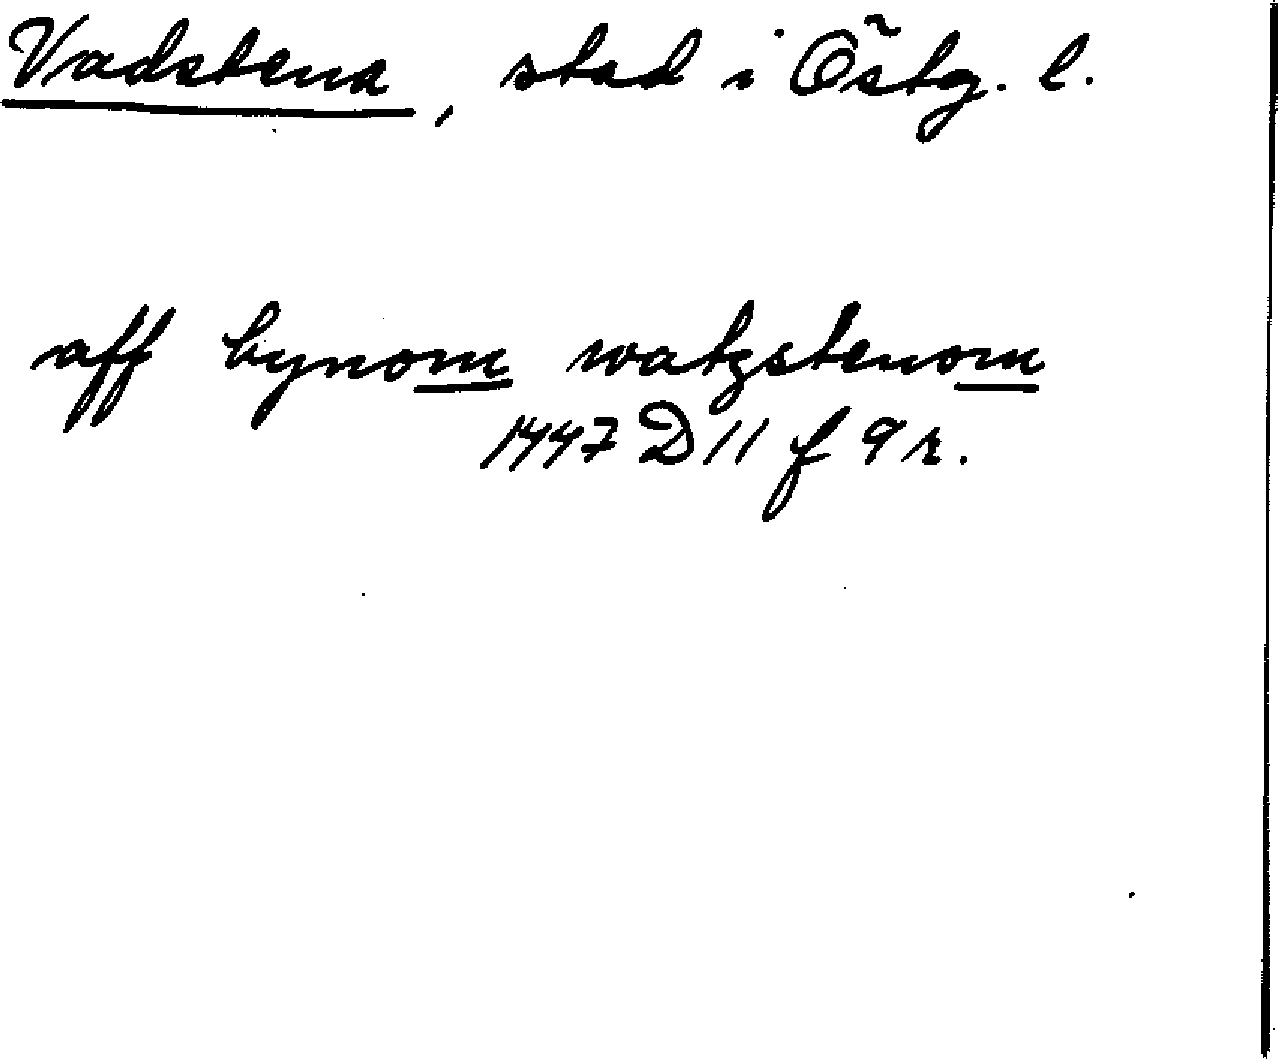 Vadstena, stad i Östg. l.
aff bynom watzstenom
1447 D 11 f 9 r.